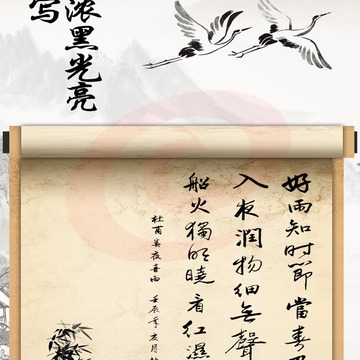 浓黑光亮
写
好雨知时節當春
入夜潤物细無聲
船火獨明曉看红濕
杜甫春夜喜雨 壬辰年